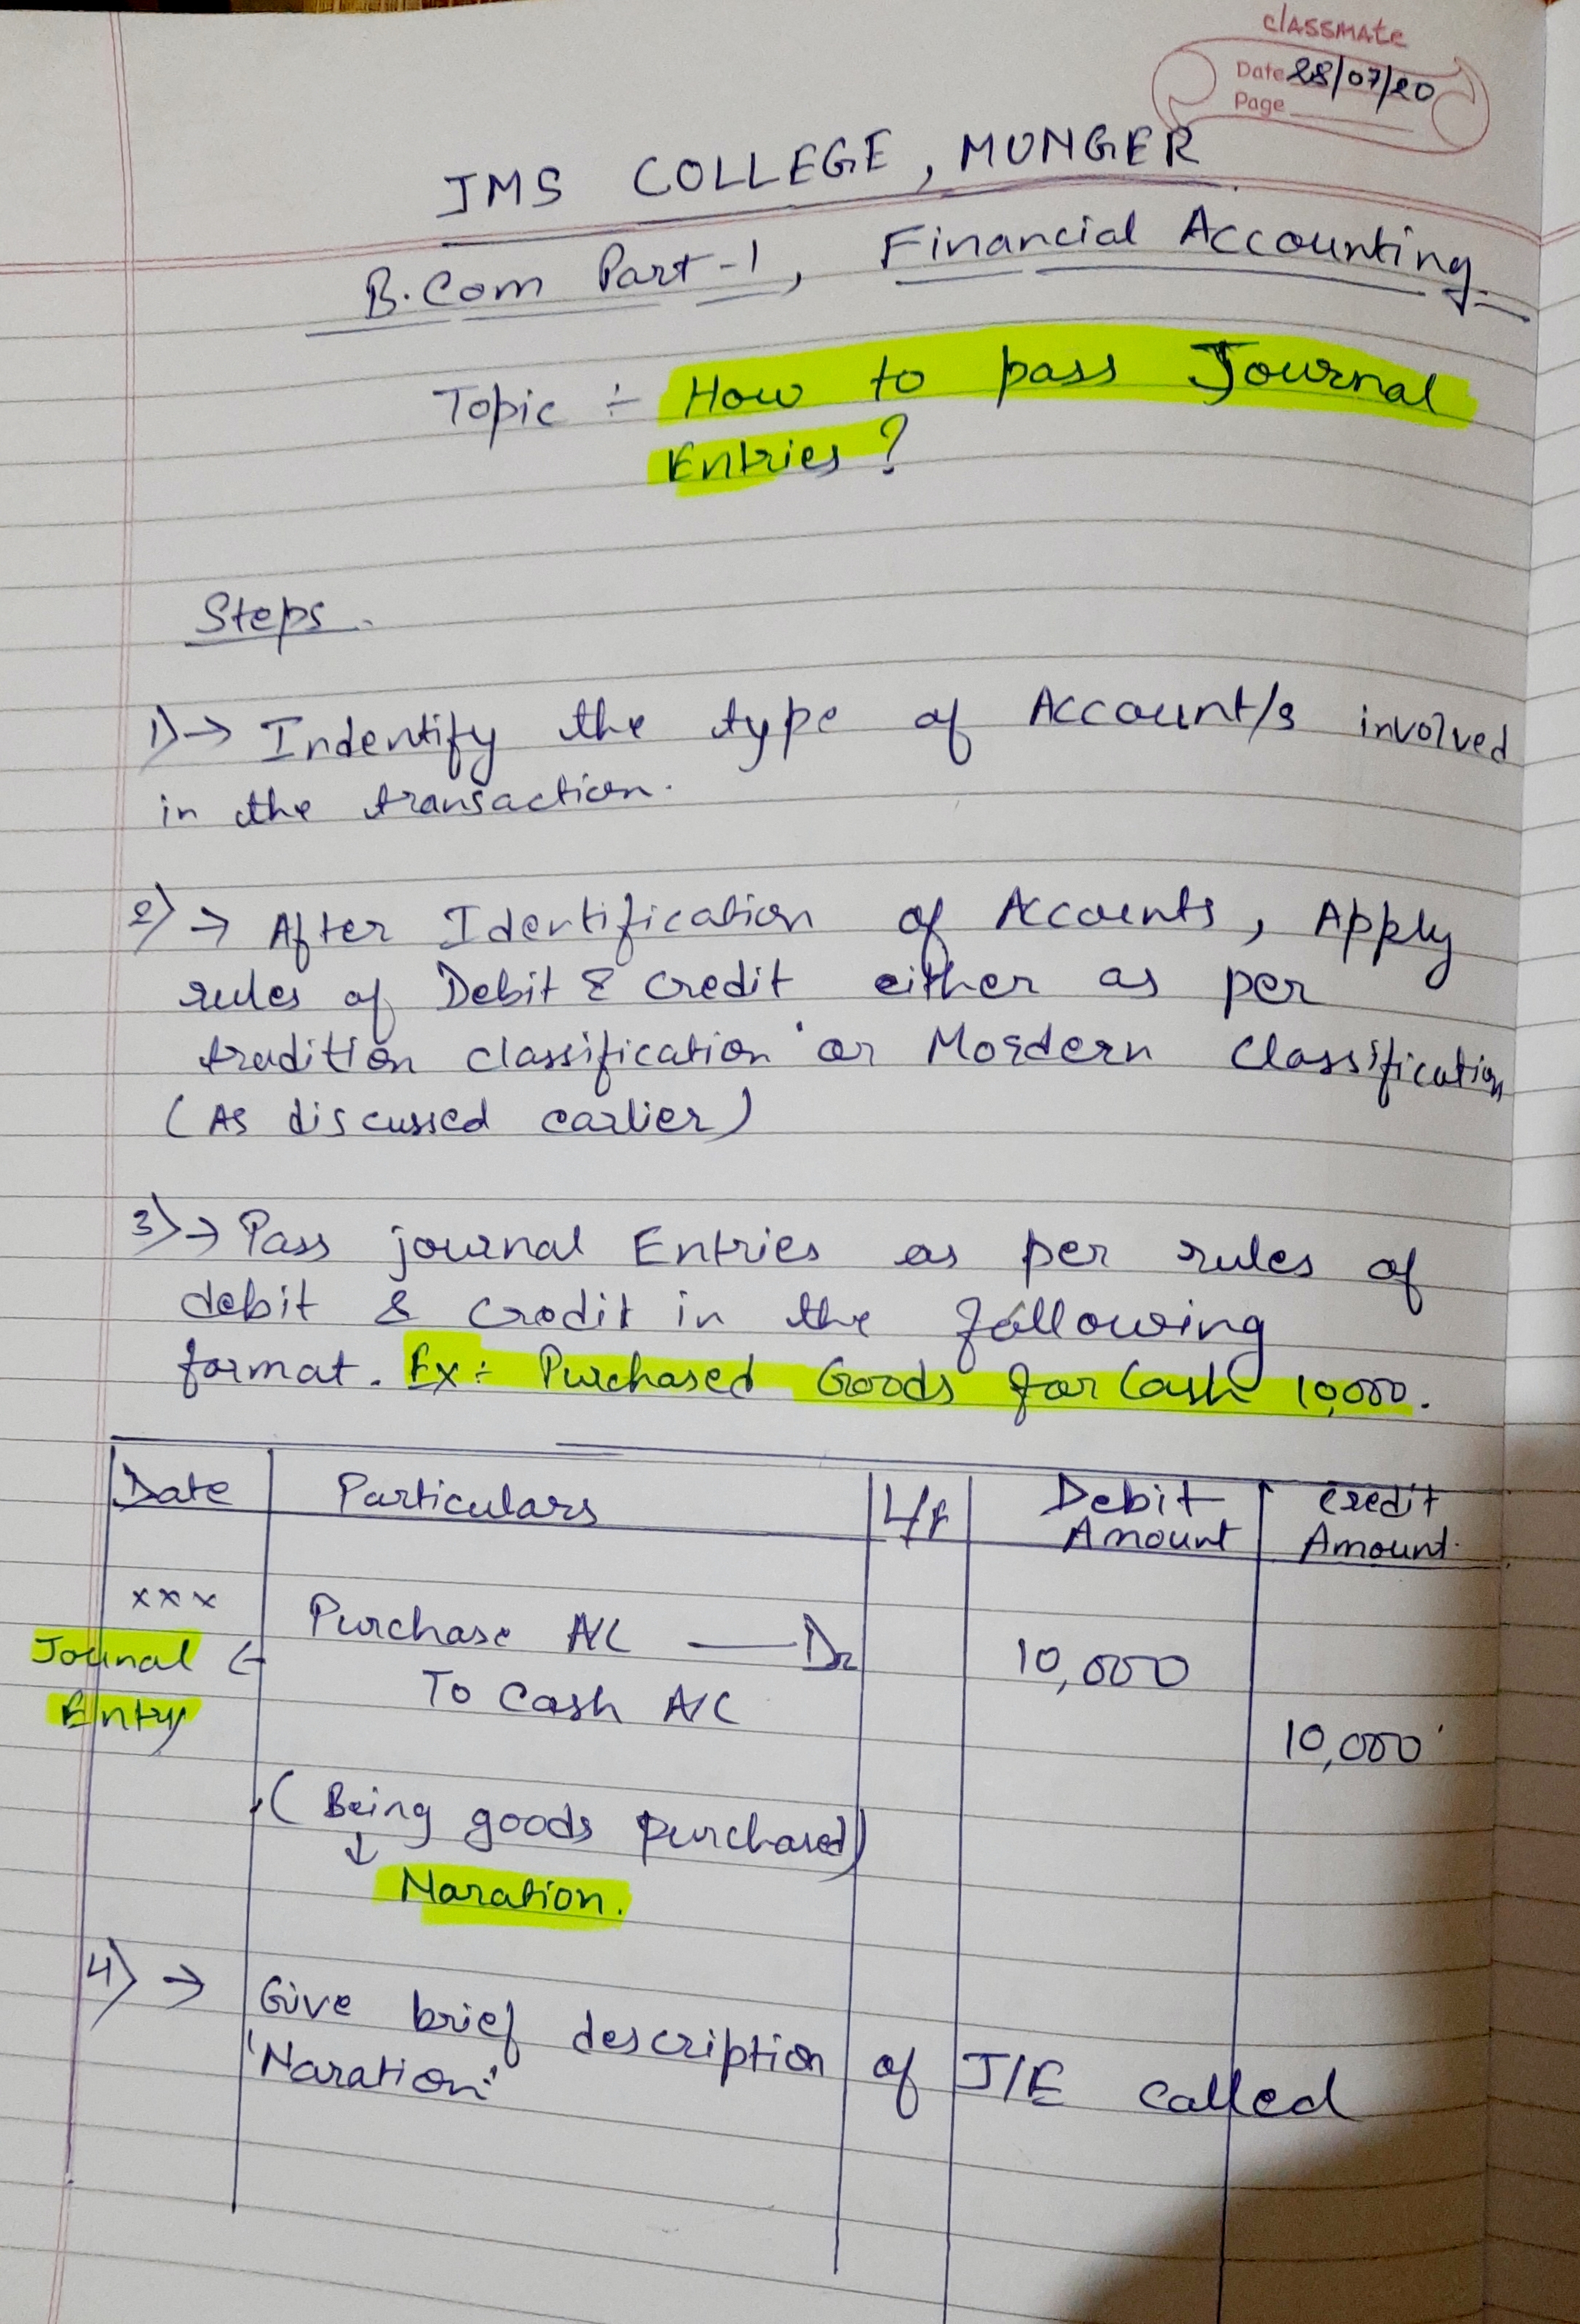 classmate
Date 28/07/20
Page
JMS COLLEGE, MUNGER
B.Com Part-1, Financial Accounting
Topic ÷ How to pass Journal
Entries?
Steps.
1)→ Indentify the type of Account/s involved
in the transaction.
2)→ After Identification of Accounts, Apply
rules of Debit & Credit either as per
tradition classification or Mordern Classification
(As discussed earlier)
3)→ Pass journal Entries as per rules of
debit & Credit in the following
format. Ex÷ Purchased Goods for Cash 10,000.
Date Particulars L/f Debit Amount Credit Amount.
xxx Purchase A/C — Dr 10,000
Journal Entry ← To Cash A/C 10,000
(Being goods purchased)
↓
Naration.
4)→ Give brief description of J/E called
'Naration'